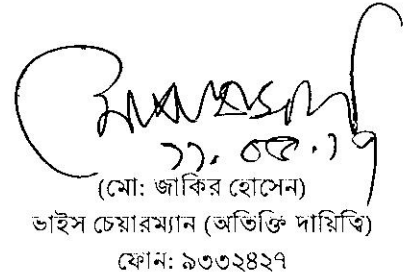 (মো: জাকির হোসেন)
ভাইস চেয়ারম্যান (অতিক্তি দায়িত্বি)
ফোন: ৯৩৩২৪২৭